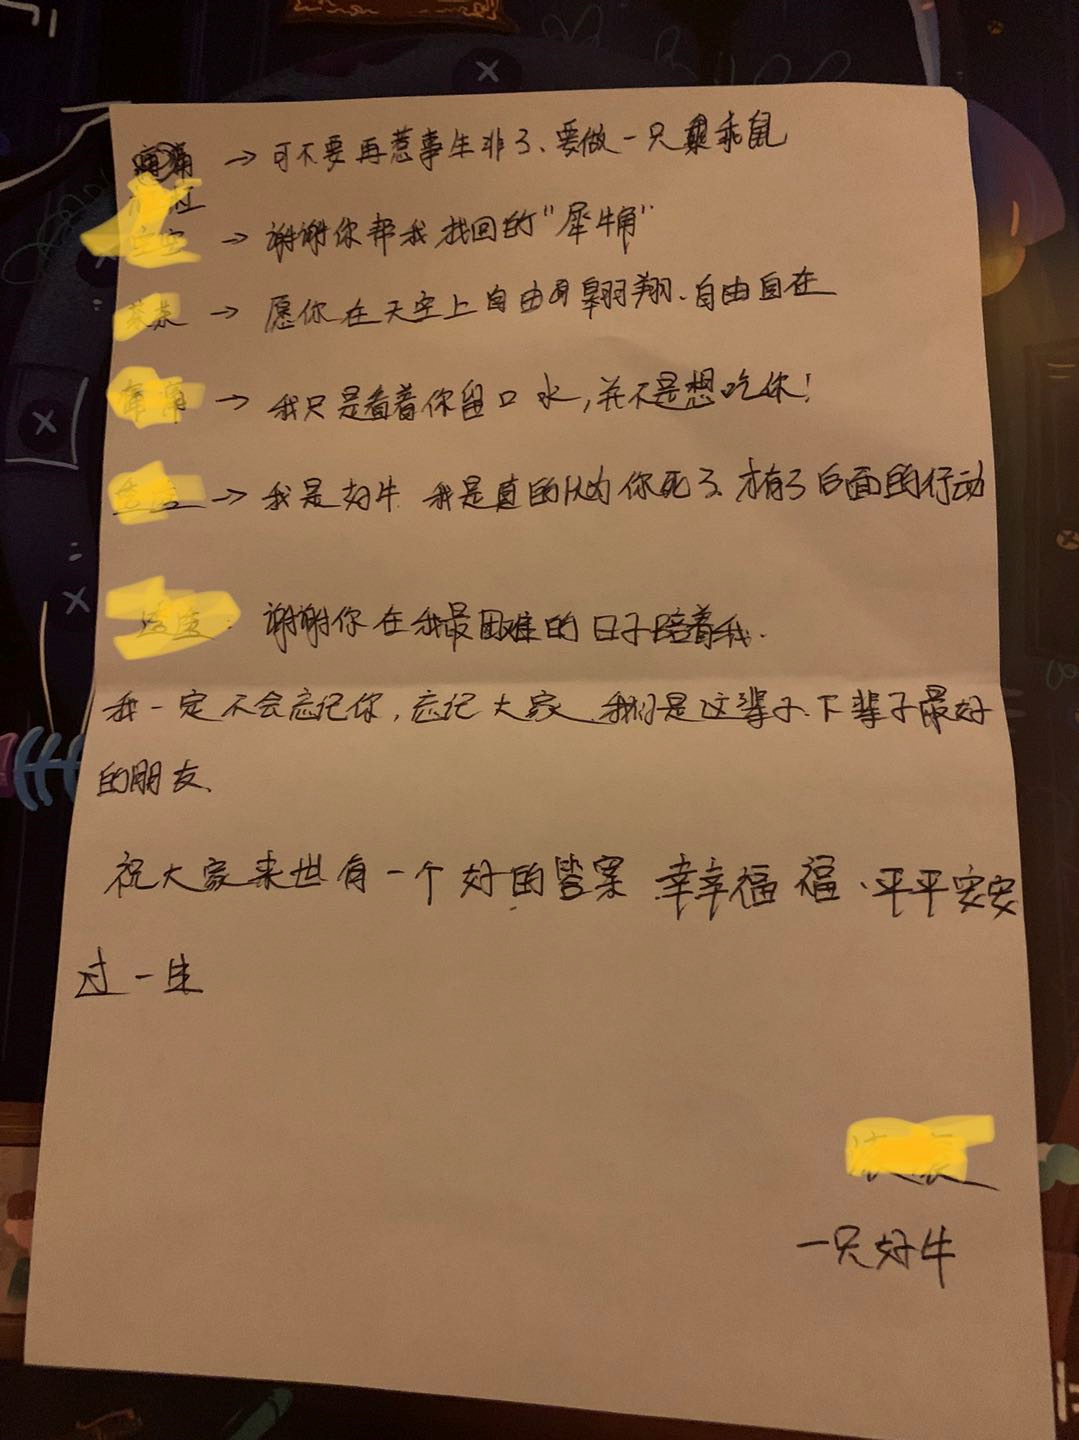 → 可不要再惹事生非了、要做一只乖鼠
→ 谢谢你帮我找回的“犀牛角”
→ 愿你在天空上自由翱翔、自由自在
→ 我只是看着你留口水,并不是想吃你!
→ 我是好牛 我是真的以为你死了、才有了后面的行动
谢谢你在我最困难的日子陪着我.
我一定不会忘记你,忘记大家 我们是这辈子、下辈子最好
的朋友、
祝大家来世有一个好的答案 幸幸福福、平平安安
过一生
一只好牛